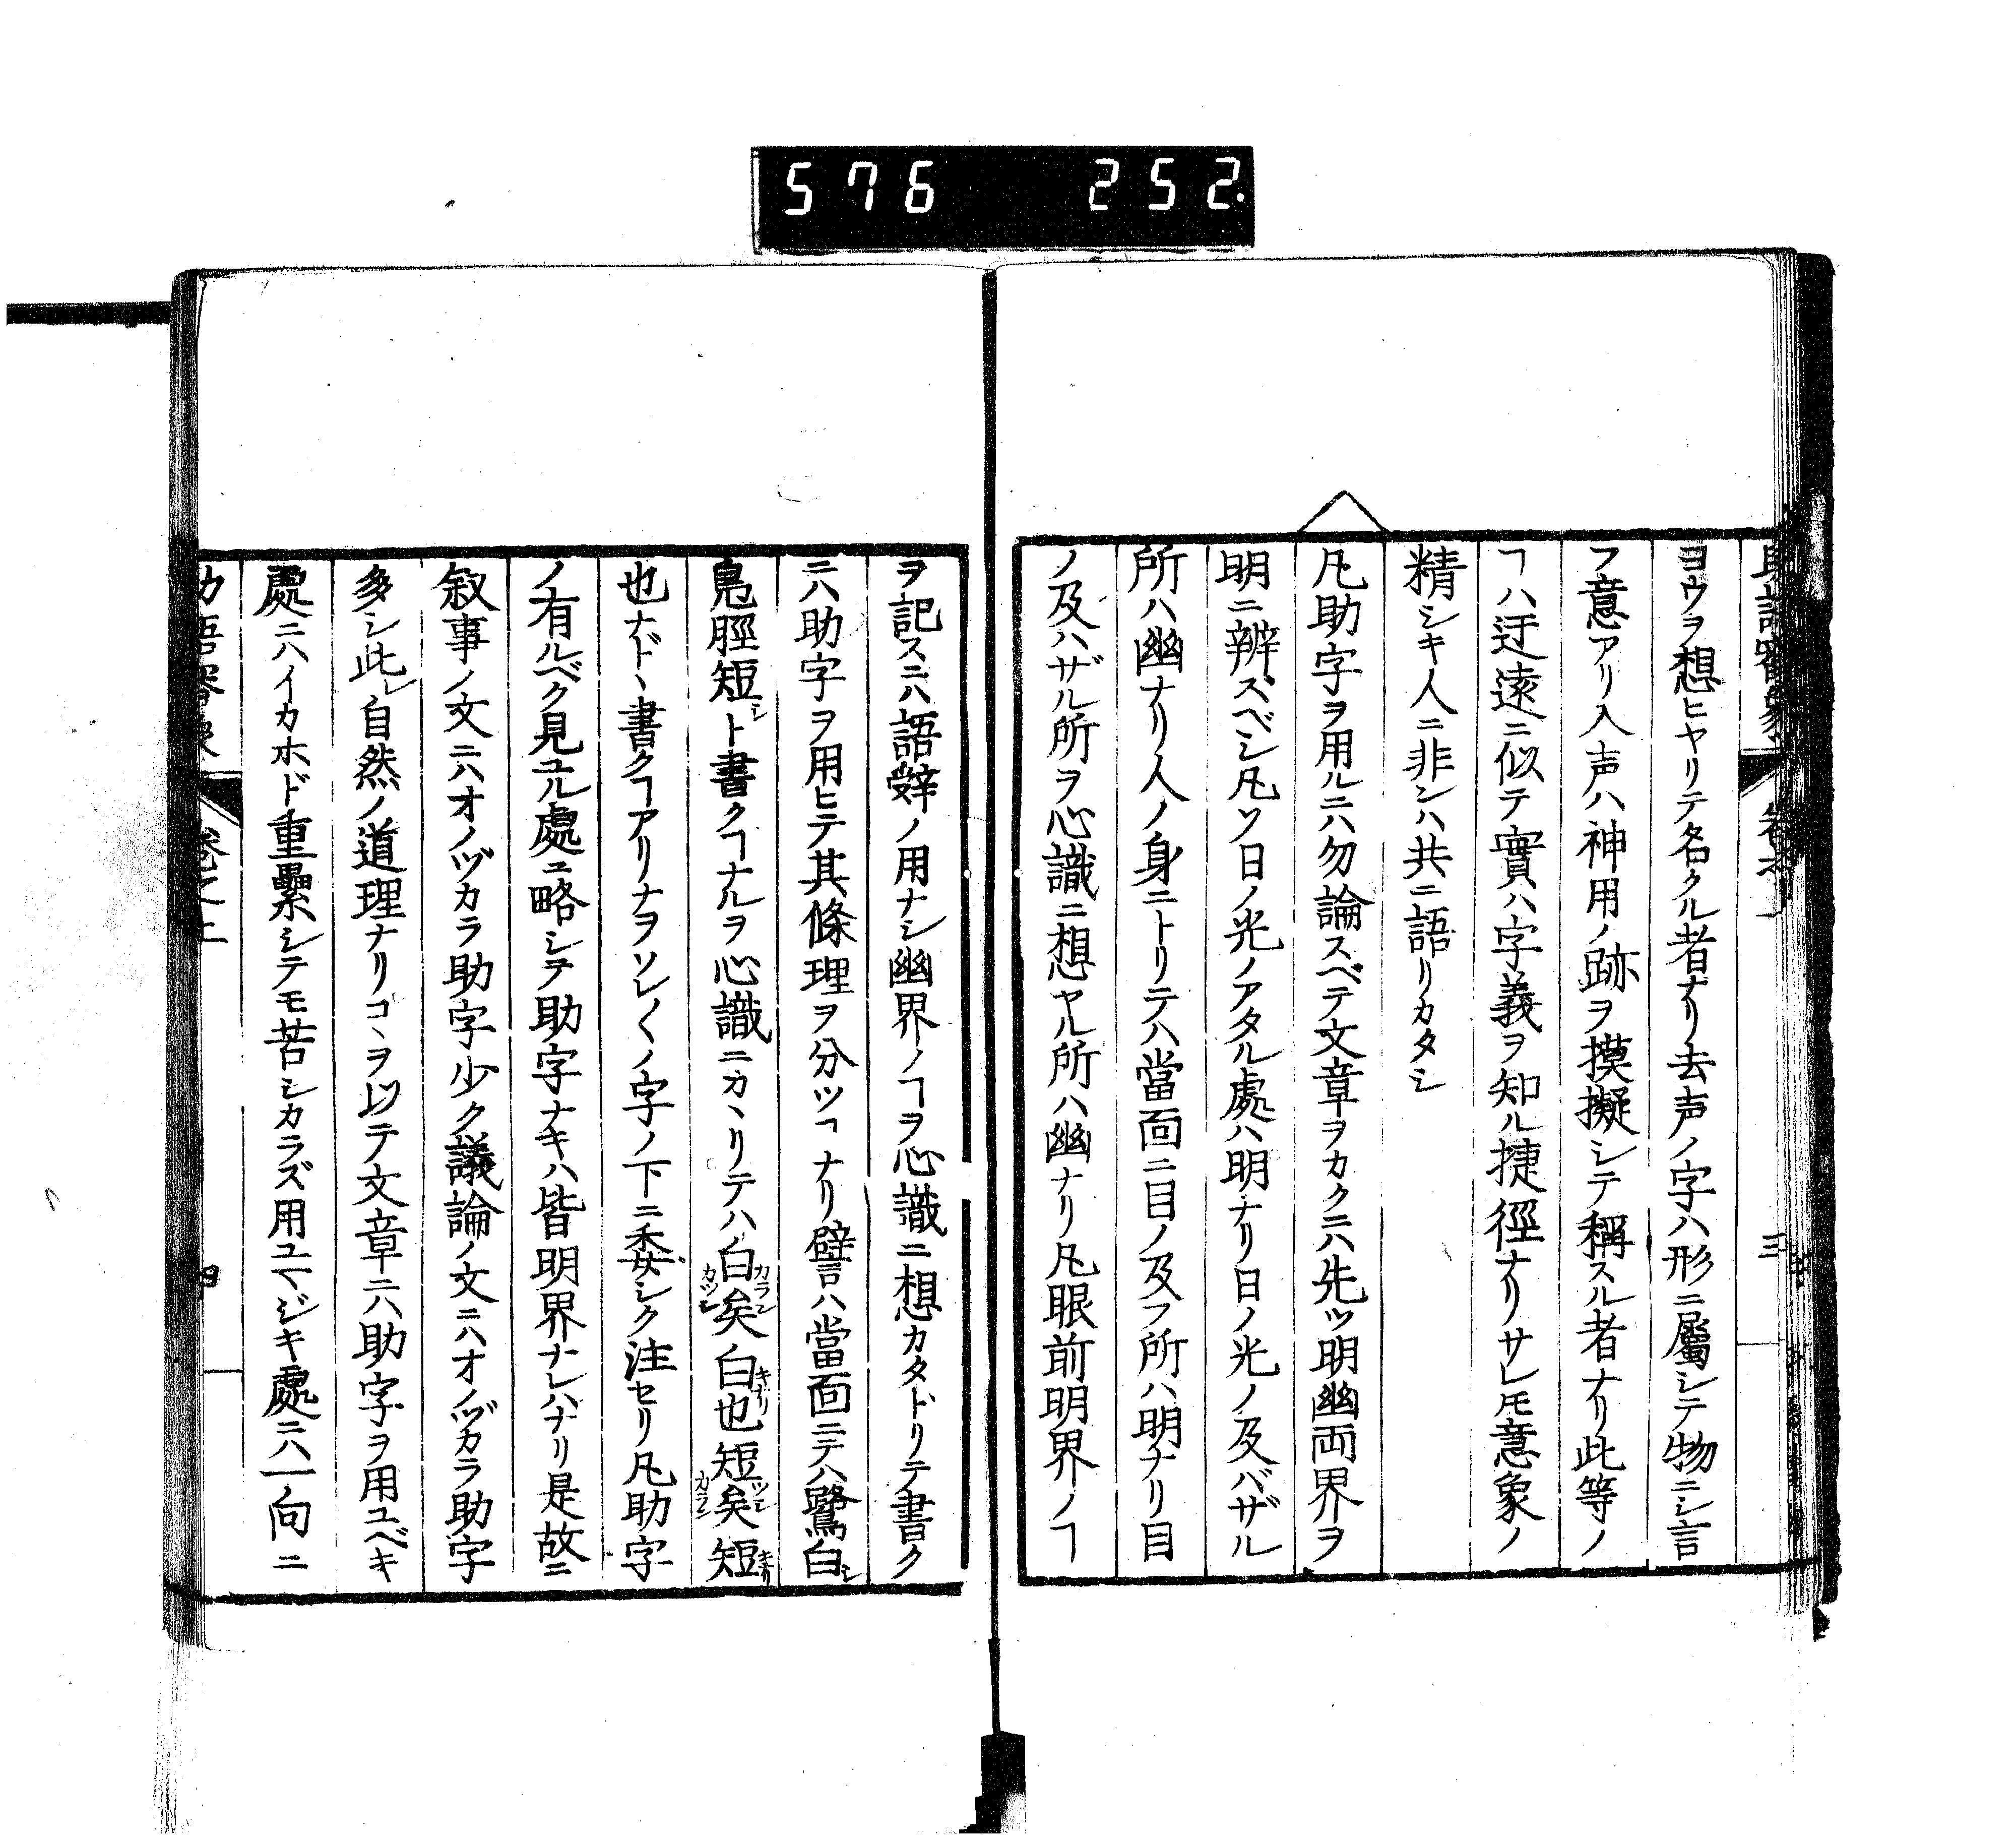 576 252
ヨウヲ想ヒヤリテ名クル者ナリ去声ノ字ハ形ニ屬シテ物ニシ言
フ意アリ入声ハ神用ノ跡ヲ摸擬シテ稱スル者ナリ此等ノ
ヿハ迂遠ニ似テ實ハ字義ヲ知ル捷徑ナリサレ𪜈意象ノ
精シキ人ニ非シハ共ニ語リカタシ
凡助字ヲ用ルニハ勿論スベテ文章ヲカクニハ先ツ明幽両界ヲ
明ニ辨スベシ凡ソ日ノ光ノアタル處ハ明ナリ日ノ光ノ及バザル
所ハ幽ナリ人ノ身ニトリテハ當面ニ目ノ及フ所ハ明ナリ目
ノ及ハザル所ヲ心識ニ想ヤル所ハ幽ナリ凡眼前明界ノヿ
ヲ記スニハ語辤ノ用ナシ幽界ノヿヲ心識ニ想カタドリテ書ク
ニハ助字ヲ用ヒテ其條理ヲ分ツヿナリ譬ハ當面ニテハ鷺白シ
鳧脛短シト書クヿナルヲ心識ニカヽリテハ白矣白也短矣短
也ナドヽ書クヿアリナヲソレ〱ノ字ノ下ニ委シク注セリ凡助字
ノ有ルベク見ユル處ニ略シテ助字ナキハ皆明界ナレハナリ是故ニ
叙事ノ文ニハオノヅカラ助字少ク議論ノ文ニハオノヅカラ助字
多シ此レ自然ノ道理ナリコヽヲ以テ文章ニハ助字ヲ用ユベキ
處ニハイカホド重疊シテモ苦シカラズ用ユマジキ處ニハ一向ニ
卷之上
四